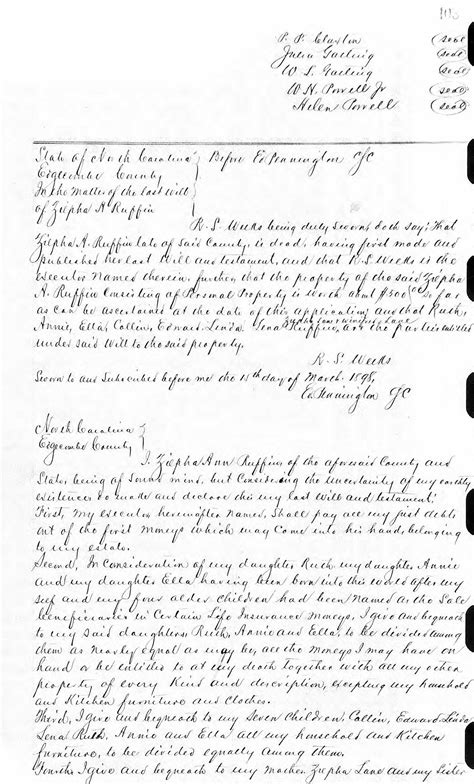 103
P. P. Claxton (seal)
Julia Gatling (seal)
W L Gatling (seal)
W. H. Powell Jr (seal)
Helen Powell (seal)
State of North Carolina } Before Ed Pennington CSC
Edgecombe County
In the Matter of the last Will
of Zilpha A Ruffin
R. S. Weeks being duly sworn, doth say; That
Zilpha A. Ruffin late of said County, is dead, having first made and
published her last Will and testament, and that R. S. Weeks is the
executor named therein, further, that the property of the said Zilpha
A. Ruffin consisting of Personal Property is worth about $500 so far
as can be ascertained at the date of this application, and that Ruth,
Annie, Ella, Collin, Edward, Lena Ruffin, are the parties entitled
under said Will to the said property.
R. S. Weeks
Sworn to and Subscribed before me the day of March 1898,
Ed Pennington CSC
North Carolina }
Edgecombe County
I, Zilpha Ann Ruffin of the aforesaid County and
State, being of sound mind, but considering the uncertainty of my earthly
existence do make and declare this my last will and testament;
First, My executor hereinafter named, shall pay all my just debts
out of the first moneys which may come into his hand, belonging
to my estate.
Second, In consideration of my daughter Ruth my daughter Annie
and my daughter Ella having been born into this world after my
self and my four older children had been named as the sole
beneficiaries in certain Life Insurance moneys, I give and bequeath
to my said daughters Ruth, Annie and Ella, to be divided among
them as nearly equal as may be, all the moneys I may have on
hand or be entitled to at my death together with all my other
property of every kind and description, excepting my household
and kitchen furniture and clothes.
Third, I give and bequeath to my seven children, Collin, Edward
Lena Ruth, Annie and Ella all my household and kitchen
furniture, to be divided equally among them.
Fourth, I give and bequeath to my mother Zilpha Lane and my sister